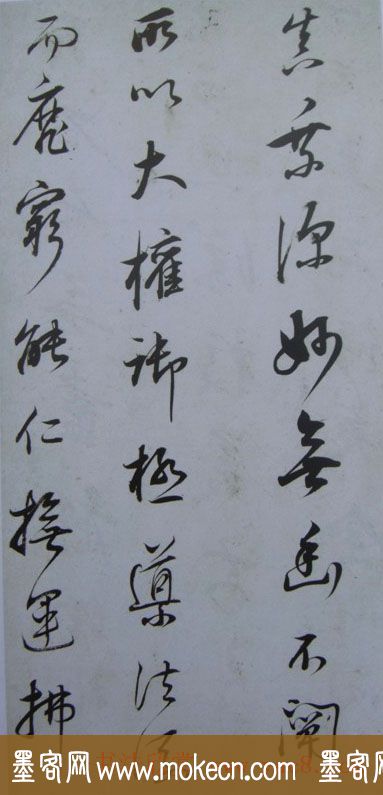 真乘深妙無幽不闡
所以大權御極導法
而靡窮能仁撫運拂
墨客网 www.mokecn.com 墨客网